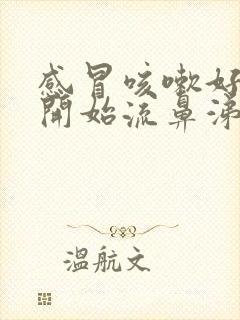 感冒咳嗽好
開始流鼻涕
溫航文